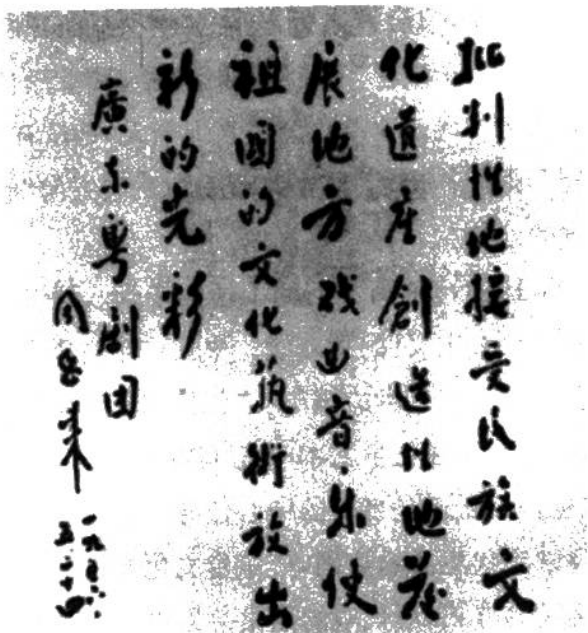 批判性地接受民族文
化遺產創造性地發
展地方戏曲音乐使
祖國的文化藝術放出
新的光彩
廣东粤劇团
周恩来
一九五六.
五.二十四